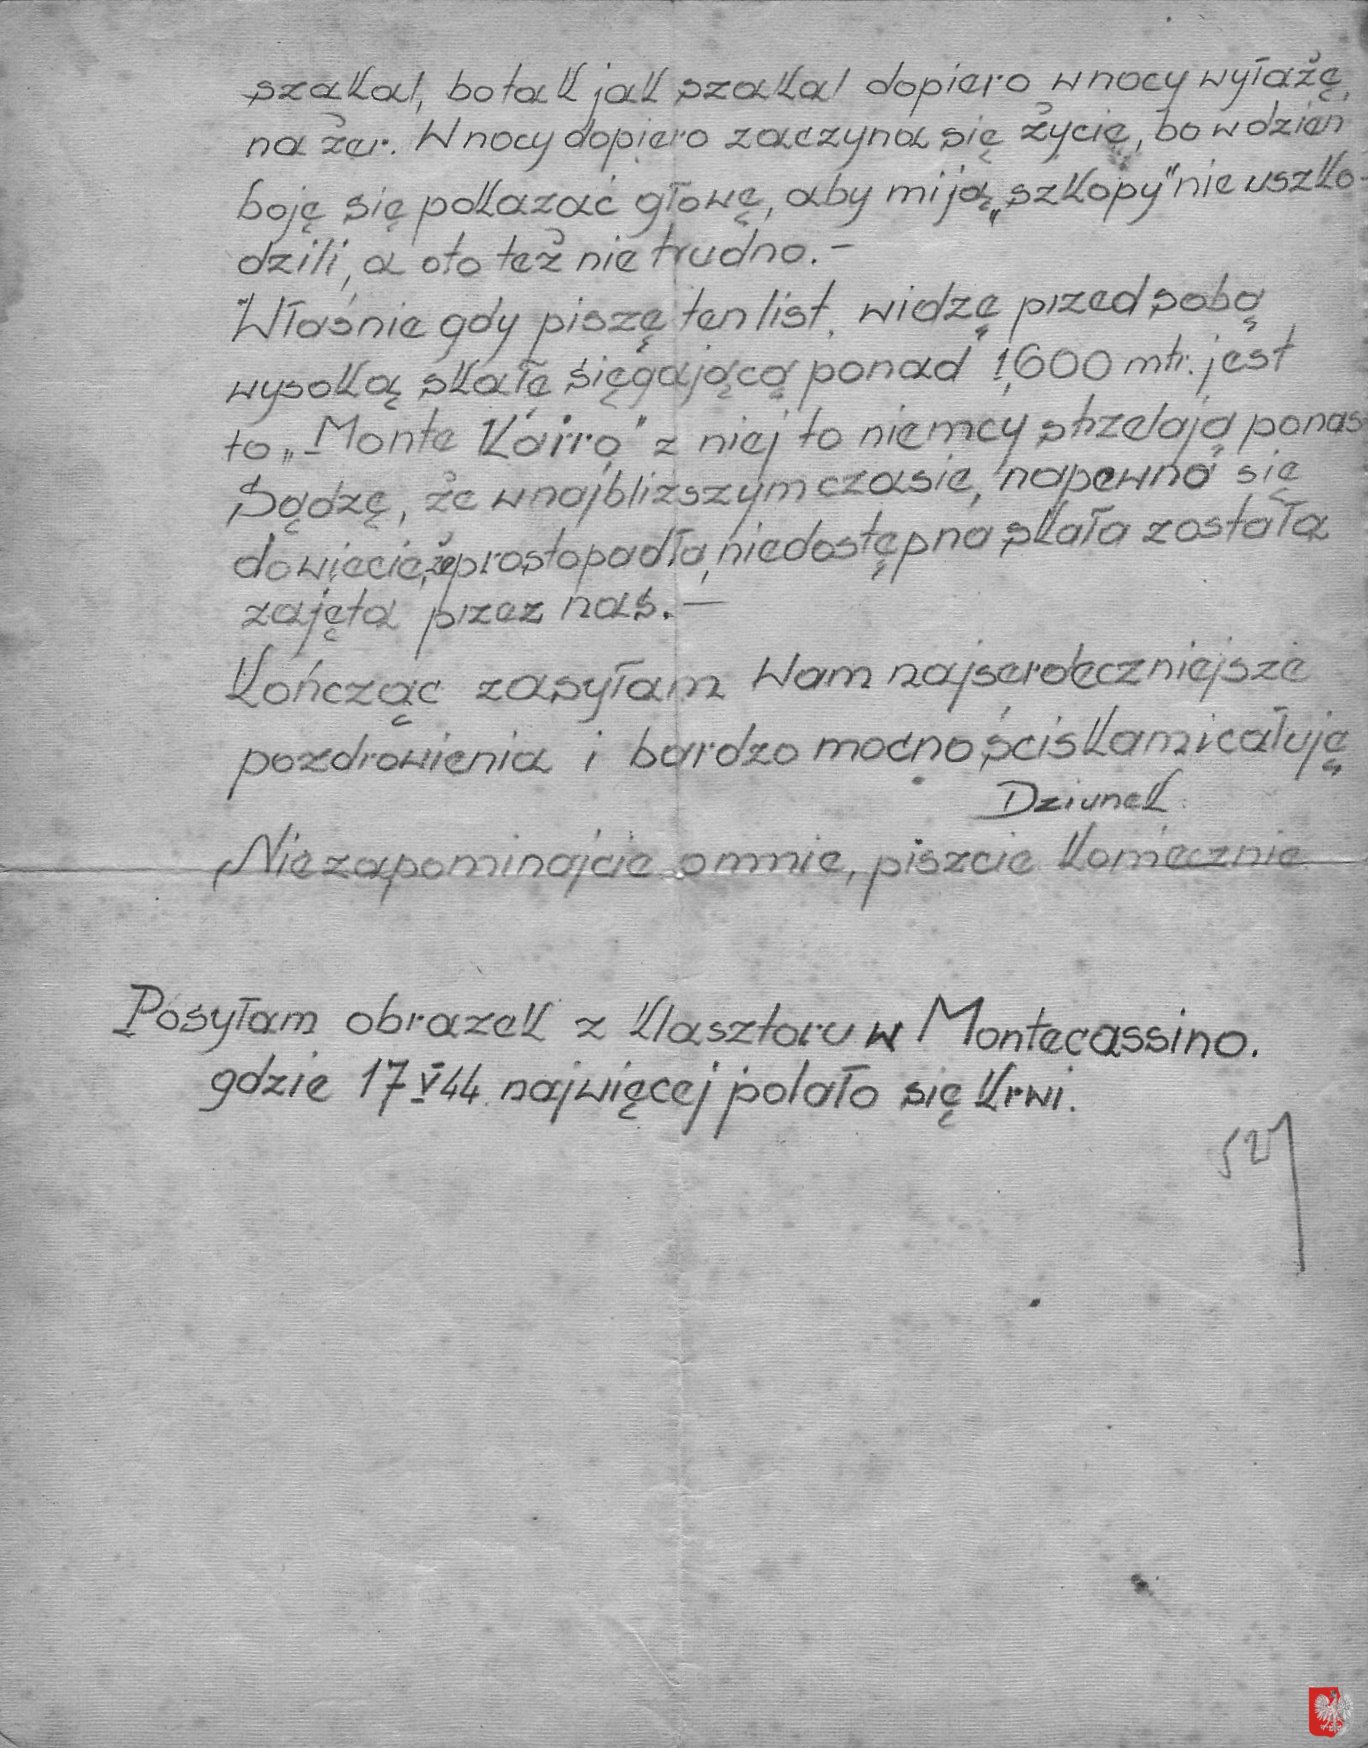 szakal, bo tak jak szakal dopiero w nocy wyłażę,
na żer. W nocy dopiero zaczyna się życie, bo w dzień
boję się pokazać głowę, aby mi ją „szkopy" nie uszko-
dzili, a oto też nie trudno. —
Właśnie gdy piszę ten list, widzę przed sobą
wysoką skałę sięgającą ponad 1,600 mtr. jest
to „Monte Kairo" z niej to niemcy strzelają po nas
Sądzę, że w najbliższym czasie, napewno się
dowiecie, że prostopadła, niedostępna skała została
zajęta przez nas. —
Kończąc zasyłam Wam najserdeczniejsze
pozdrowienia i bardzo mocno ściskam i całuję
Dziunek.
Nie zapominajcie o mnie, piszcie koniecznie
Posyłam obrazek z klasztoru w Montecassino.
gdzie 17 V 44. najwięcej polało się krwi.